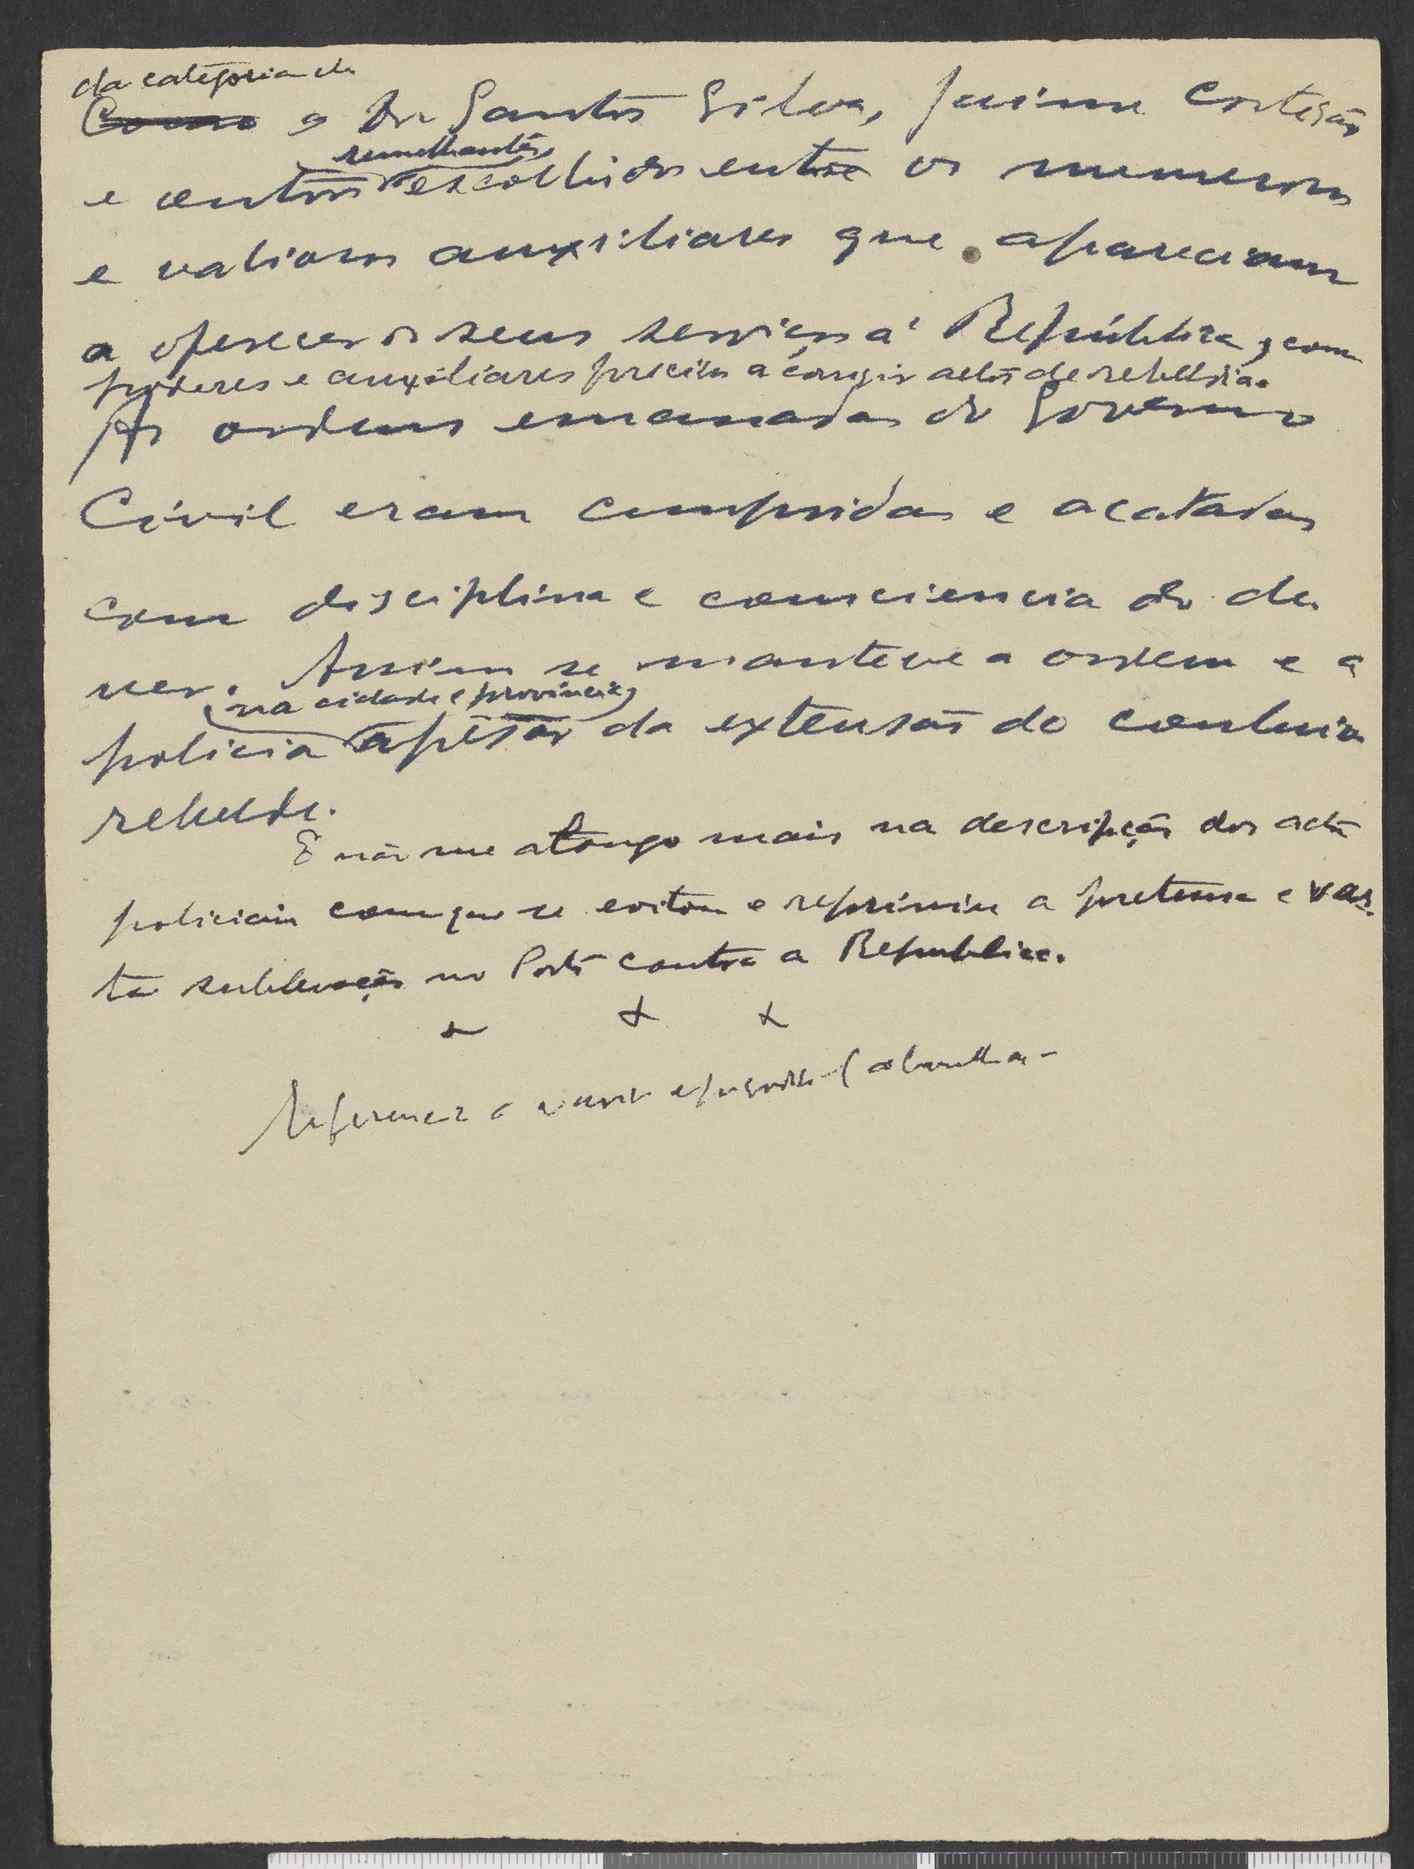 da categoria de
Como o Dr Santos Silva, Jaime Cortesão
semelhantes
e outros escolhidos entre os numerosos
e valiosos auxiliares que apareciam
a oferecer os seus serviços á República, com
poderes e auxiliares precisos a corrigir actos de rebeldia.
As ordens emanadas do Governo
Civil eram cumpridas e acatadas
com disciplina e consciencia do de
ver. Assim se manteve a ordem e a
na cidade e provincia,
policia apesar da extensão do conluio
rebelde.
E não me alongo mais na descripção dos actos
policiais com que se evitou e reprimiu a pretensa e vas-
ta sublevação no Porto contra a Republica.
x x x